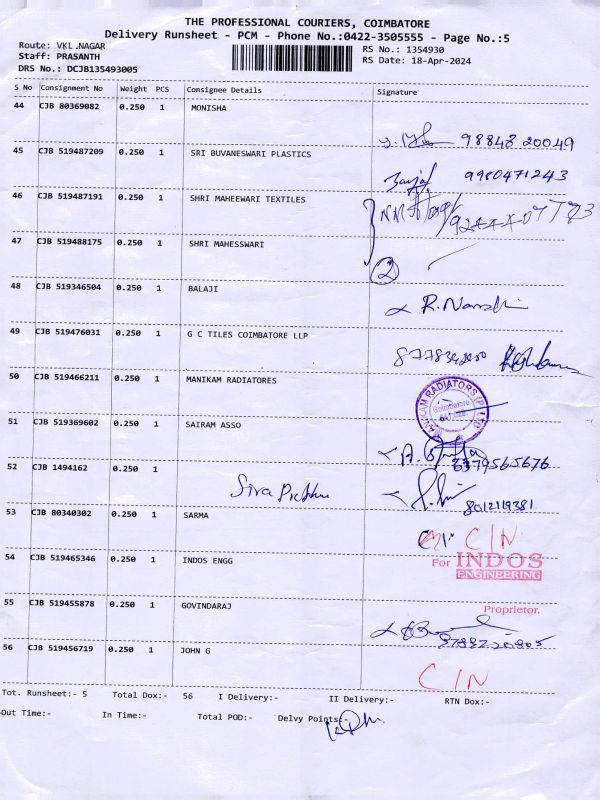 THE PROFESSIONAL COURIERS, COIMBATORE
Delivery Runsheet - PCM - Phone No.:0422-3505555 - Page No.:5
Route: VKL.NAGAR
RS No.: 1354930
Staff: PRASANTH
RS Date: 18-Apr-2024
DRS No.: DCJB135493005
S No Consignment No Weight PCS Consignee Details Signature
44 CJB 80369082 0.250 1 MONISHA
98848 20049
45 CJB 519487209 0.250 1 SRI BUVANESWARI PLASTICS
9980471243
46 CJB 519487191 0.250 1 SHRI MAHEEWARI TEXTILES
47 CJB 519488175 0.250 1 SHRI MAHESSWARI
2
48 CJB 519346504 0.250 1 BALAJI
R.
49 CJB 519476031 0.250 1 G C TILES COIMBATORE LLP
50 CJB 519466211 0.250 1 MANIKAM RADIATORES
MANIKAM RADIATORS (P) LTD
Coimbatore
51 CJB 519369602 0.250 1 SAIRAM ASSO
6379565676
52 CJB 1494162 0.250 1
Siva Prabhu
8012119381
53 CJB 80340302 0.250 1 SARMA
C/N
54 CJB 519465346 0.250 1 INDOS ENGG
For INDOS
ENGINEERING
Proprietor.
55 CJB 519455878 0.250 1 GOVINDARAJ
56 CJB 519456719 0.250 1 JOHN G
C/N
Tot. Runsheet:- 5 Total Dox:- 56 I Delivery:- II Delivery:- RTN Dox:-
Out Time:- In Time:- Total POD:- Delvy Points:-